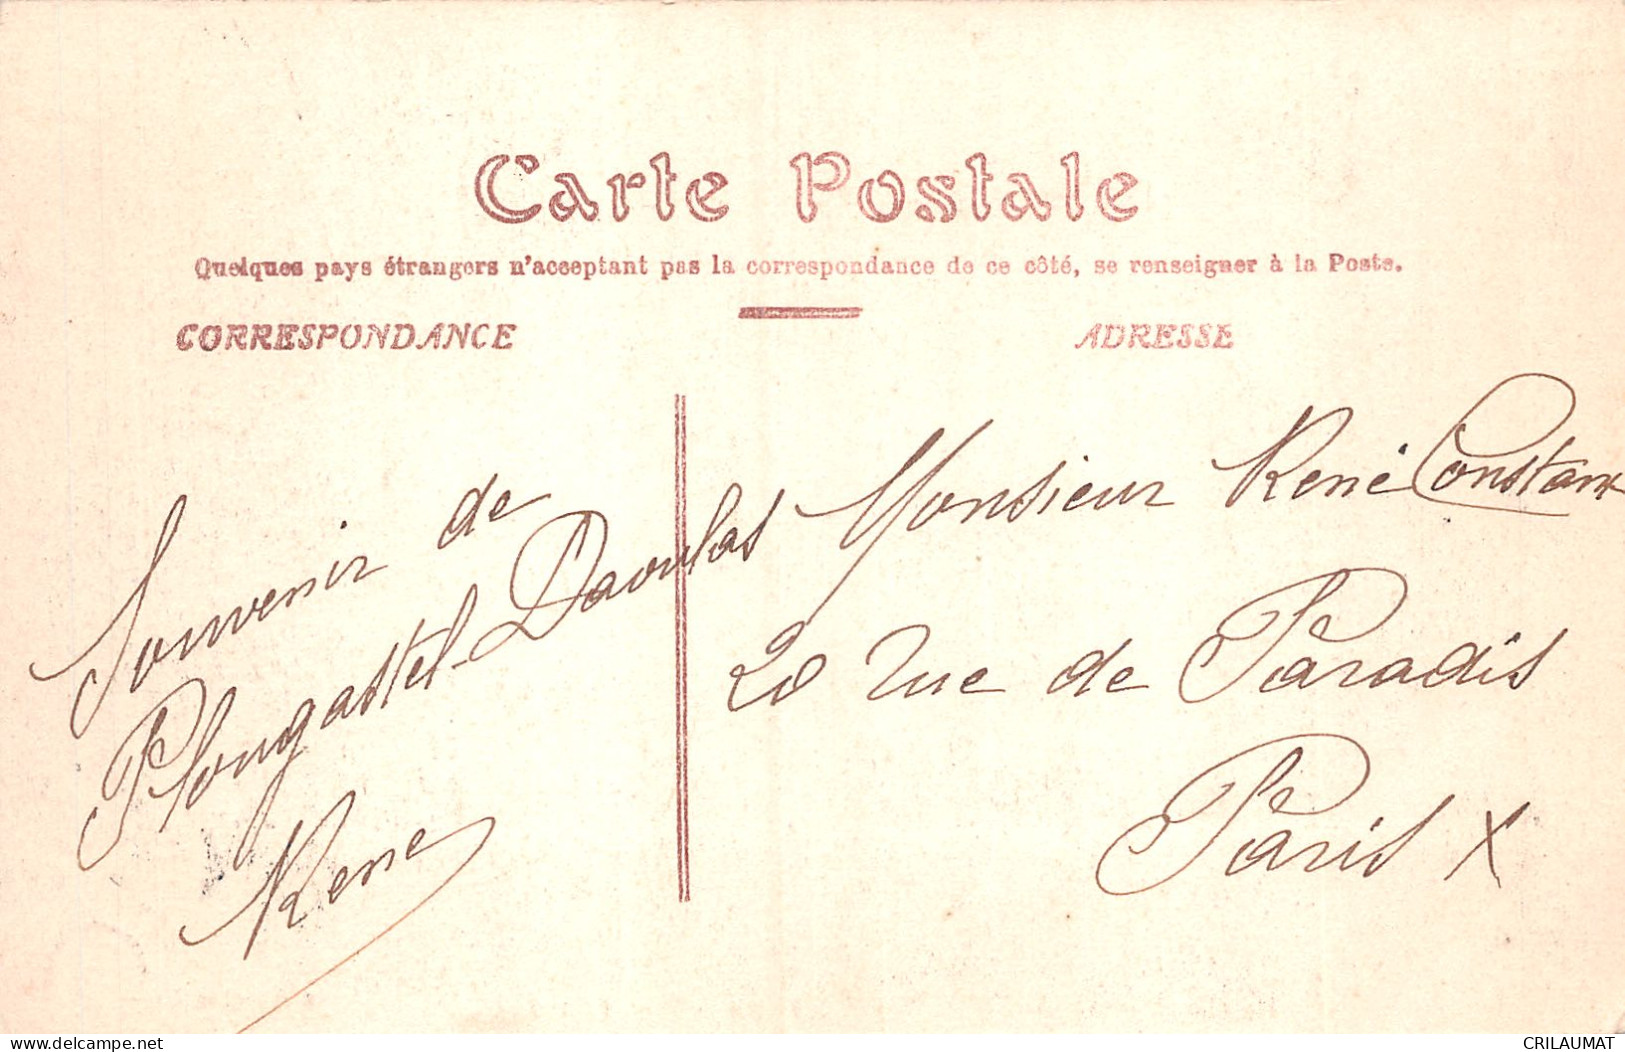 Carte Postale
Quelques pays étrangers n'acceptant pas la correspondance de ce côté, se renseigner à la Poste.
CORRESPONDANCE
ADRESSE
Souvenir de
Plougastel-Daoulas
René
Monsieur René Constant
20 rue de Paradis
Paris X
www.delcampe.net
CRILAUMAT